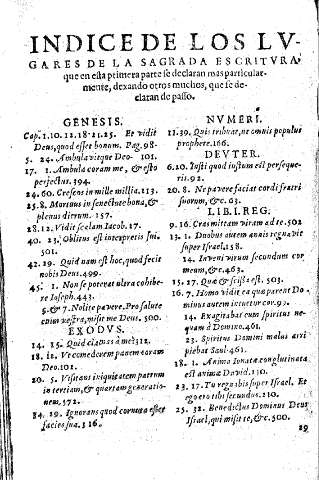 INDICE DE LOS LV-
GARES DE LA SAGRADA ESCRITVRA
que en esta primera parte se declaran mas particular-
mente, dexando otros muchos, que se de-
claran de passo.
GENESIS.
Cap. 1.10. 12. 18.21.25. Et vidit
Deus, quod esset bonum. Pag. 98.
5. 24. Ambulavitque Deo. 101.
17. 1. Ambula coram me, & esto
perfectus. 394.
24. 60. Crescas in mille millia. 113.
25. 8. Mortuus in senectute bona, &
plenus dierum. 157.
28. 12. Vidit scalam Iacob. 17.
40. 23. Oblitus est interpretis sui.
501.
42. 29. Quid nam est hoc, quod fecit
nobis Deus. 499.
45. 1. Non se poterat ultra cohibe-
re Ioseph. 443.
5. & 7. Nolite pavere. Pro salute
enim vestra, misit me Deus. 500.
EXODVS.
14. 15. Quid clamas ad me? 312.
18. 12. Vt comederent panem coram
Deo. 101.
20. 5. Visitans iniquitatem patrum
in tertiam, & quartam generatio-
nem. 372.
34. 29. Ignorans quod cornuta esset
facies sua. 316.
NVMERI.
11. 39. Quis tribuat, ne omnis populus
prophetet. 166.
DEVTER.
6. 20. Iusti quod iustum est perseque-
ris. 92.
20. 8. Ne pavere facias cordi fratri
suorum, & c. 63.
LIB. I. REG.
9. 16. Cras mittam virum ad te. 502
13. 1. Duobus autem annis regnavit
super Israel. 158.
14. Inveni virum secundum cor
meum, & c. 463.
15. 27. Quæ & scissa est. 503.
16. 7. Homo videt ea quæ parent Do
minus autem intuetur cor. 97.
14. Exagitabat eum spiritus ne-
quam à Domino. 461.
23. Spiritus Domini malus arri
piebat Saul. 461.
18. 1. Anima Ionatæ conglutinata
est animæ David. 130.
23. 17. Tu regnabis super Israel. Et
ego ero tibi secundus. 210.
25. 32. Benedictus Dominus Deus
Israel, qui misit te, & c. 500.
29